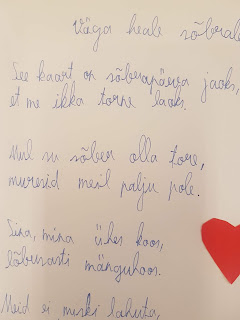 Väga heale sõbrale
See kaart on sõbrapäeva jaoks,
et me ikka torne laoks.
Mul su sõber olla tore,
muresid meil palju pole.
Sina, mina ühes koos,
lõbusasti mänguhoos.
Meid ei miski lahuta,